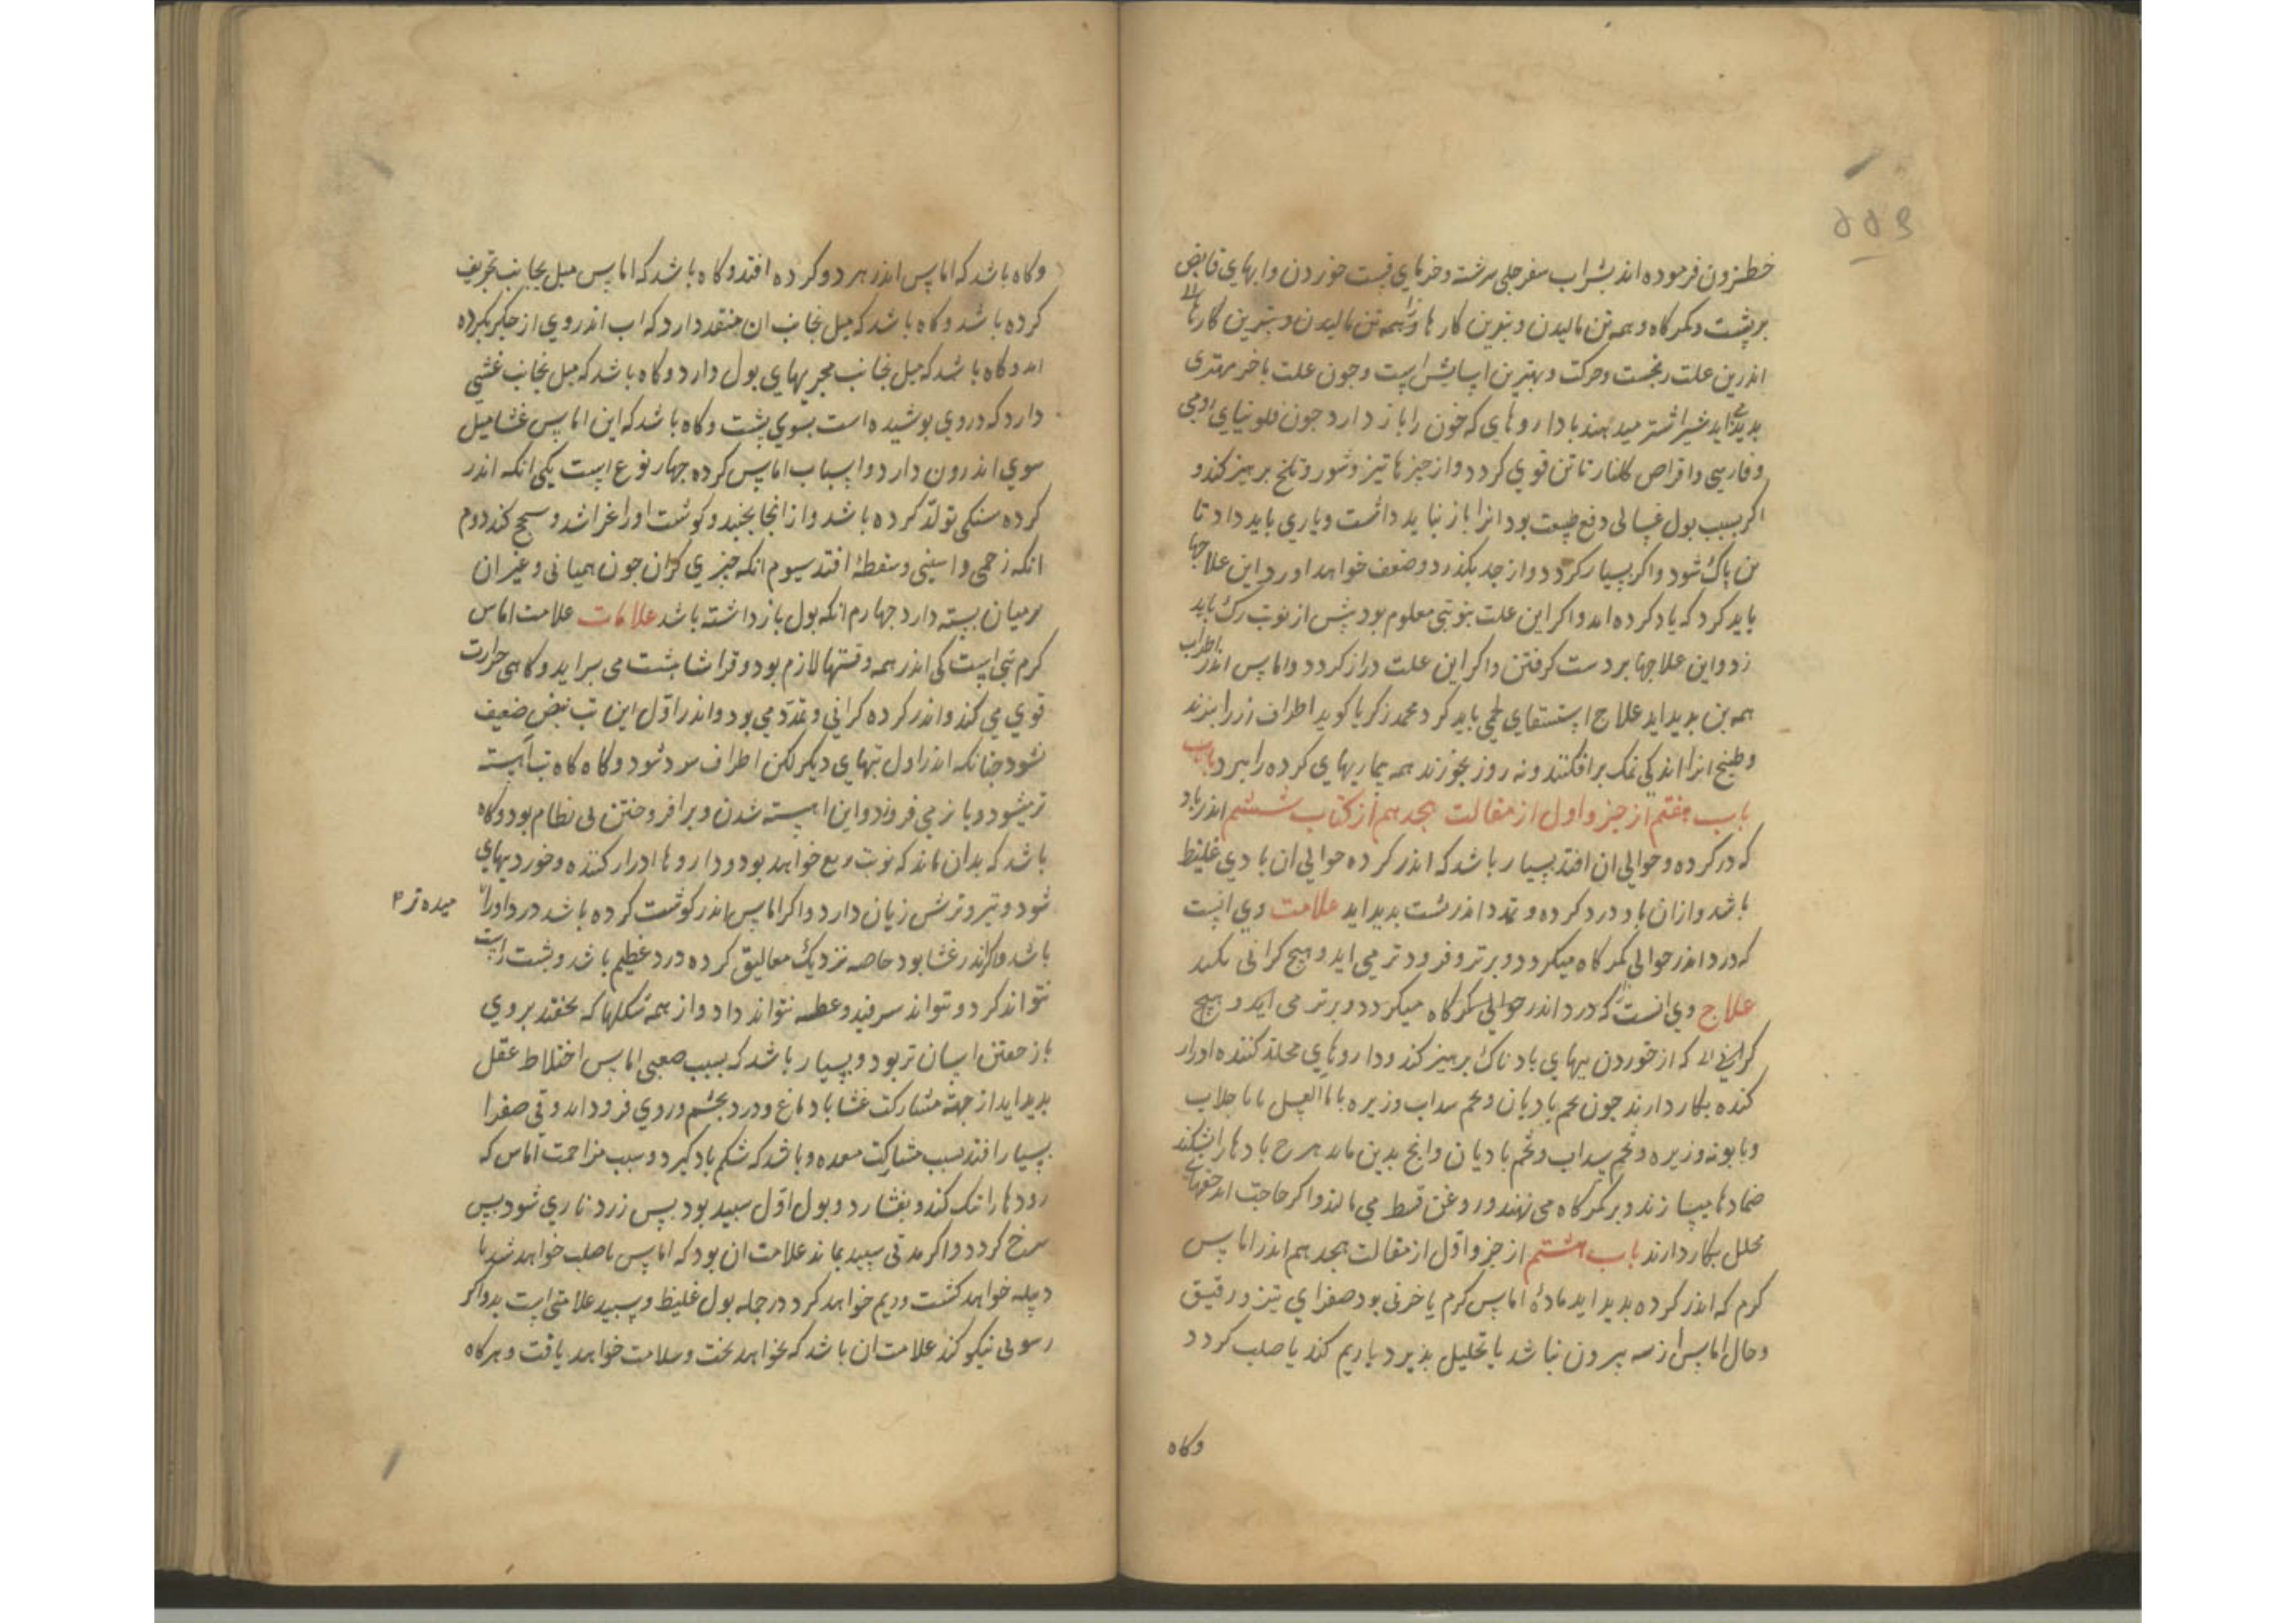 ۵۵۹
خطزدن فرموده اند بشراب سفرجلی سرشته و خرمای قسب خوردن و ابهای قابض
بر پشت و کمرگاه و همه تن مالیدن و بترین کارها
اندرین علت رنجست و حرکت و بهترین اسایش است و چون علت باخر بهتری
بدید اید شیر اشتر میدهند با داروهای که خون را باز دارد جون فلونیای رومی
و فارسی و اقراص کلنار تا تن قوی کردد و از جیزها تیز و شور و تلخ برهیز کند و
اکر بسبب بول غسالی دفع طبیعت بود انرا باز نباید داشت و یاری باید داد تا
تن پاک شود و اکر بسیار کردد و از حد بکذرد و ضعف خواهد اورد این علاجها
باید کرد که یاد کرده اند و اکر این علت بنوبتی معلوم بود بیش از نوبت رک باید
زد و این علاجها بر دست کرفتن و اکر این علت دراز کردد و اماس اندر اطراف
همه تن بدید اید علاج استسقای لحمی باید کرد محمد زکریا کوید اطراف رز را ببزند
و طبیخ انرا اندکی نمک برافکنند و نه روز بخورند همه بیماریهای کرده را ببرد باب
باب هفتم از جزو اول از مقالت هجدهم از کتاب ششم اندر باد
که در کرده و حوالی ان افتد بسیار باشد که اندر کرده حوالی ان بادی غلیظ
باشد و ازان باد درد کرده و تمدد اندر پشت بدید اید علامت وی انست
که درد اندر حوالی کمرگاه میکردد و برتر و فرودتر می اید و هیچ کرانی نکند
علاج وی انست که درد اندر حوالی کمرگاه میکردد و برتر می اید و هیچ
کرانی که از خوردن بیهای بادناک برهیز کند و داروهای محلله کننده ادرار
کننده بکار دارند جون تخم بادیان و تخم سداب و زیره با ماالعسل یا با جلاب
و بابونه و زیره و تخم سداب و تخم بادیان و انج بدین ماند هرج بادها را بشکند
ضمادها میسازند و بر کمرگاه می نهند و روغن قسط می مالند و اکر حاجت اید حقنهای
محلل بکار دارند باب هشتم از جزو اول از مقالت هجدهم اندر اماس
کرم که اندر کرده بدید اید مادهٔ اماس کرم یا خونی بود صفرای تیز و رقیق
و حال اماس از سه بیرون نباشد یا تحلیل بذیرد یا ریم کند یا صلب کردد
وکاه
وکاه باشد که اماس اندر هر دو کرده افتد و کاه باشد که اماس میل بجانب تجویف
کرده باشد و کاه باشد که میل بجانب ان منفذ دارد که اب اندر وی از جکر بکرده
اید و کاه باشد که میل بجانب مجریهای بول دارد و کاه باشد که میل بجانب غشی
دارد که در وی پوشیده است بسوی پشت و کاه باشد که این اماس غشا میل
سوی اندرون دارد و اسباب اماس کرده جهار نوع است یکی انکه اندر
کرده سنکی تولد کرده باشد و از انجا بجنبد و کوشت او را بخراشد و سحج کند دوم
انکه زخمی و اسیبی و سقطهٔ افتد سیوم انکه جیزی کران جون همیانی و غیر ان
بر میان بسته دارد جهارم انکه بول باز داشته باشد علامات علامت اماس
کرم تبی است کی اندر همه وقتها لازم بود و فراشا بشت می براید و کاهی حرارت
قوی می کند و اندر کرده کرانی و تمدد می بود و اندر اول این تب نبض ضعیف
نشود جنانکه اندر اول تبهای دیکر لکن اطراف سرد شود و کاه کاه تب اهسته
تر میشود و باز می فروزد و این اهسته شدن و برافروختن بی نظام بود و کاه
باشد که بدان ماند که نوبت ربع خواهد بود و داروها ادرار کننده و خوردیهای
شور و تیز و ترش زیان دارد و اکر اماس اندر کوشت کرده باشد درد او را
میده تر
باشد و اکر اندر غشا بود خاصه نزدیک معالیق کرده درد عظیم باشد و پشت راست
نتواند کرد و نتواند سرفید و عطسه نتواند داد و از همه شکلها که بخفتد بر وی
باز خفتن اسان تر بود و بسیار باشد که بسبب صعبی اماس اختلاط عقل
بدید اید از جهت مشارکت غشا با دماغ و درد بجشم و روی فرود اید و قی صفرا
بسیار افتد بسبب مشارکت معده و باشد که شکم باد کیرد و سبب مزاحمت اماس که
رودها را تنک کند و بفشارد و بول اول سبید بود بس زرد ناری شود بس
سرخ کردد و اکر مدتی سبید بماند علامت ان بود که اماس صلب خواهد شد یا
دبیله خواهد کشت و ریم خواهد کرد و در جمله بول غلیظ و سبید علامتی است بد و اکر
رسوبی نیکو کند علامت ان باشد که بخواهد بخت و سلامت خواهد یافت و هرکاه